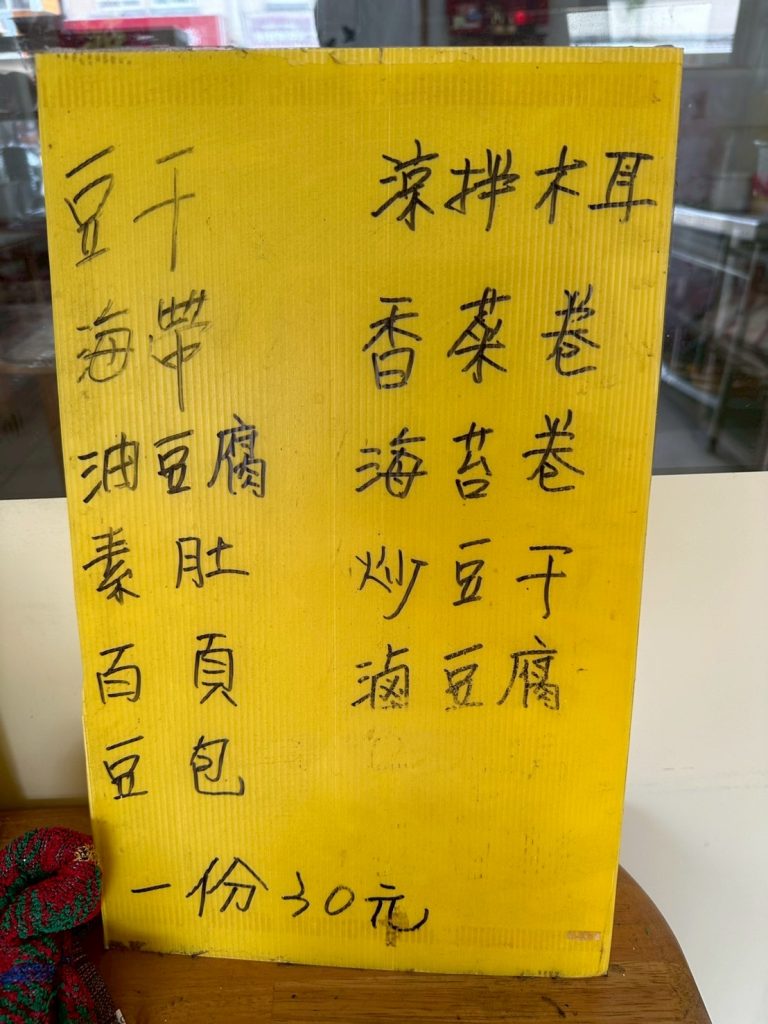 豆干
海帶
油豆腐
素肚
百頁
豆包
涼拌木耳
香菜卷
海苔卷
炒豆干
滷豆腐
一份30元